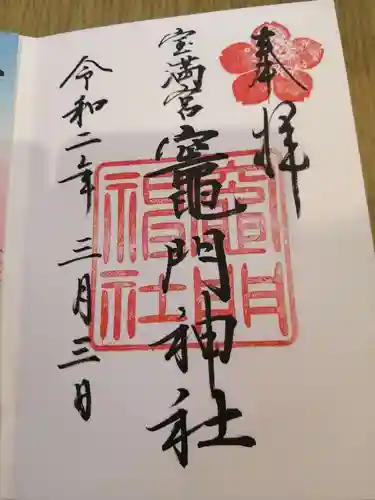 奉拝
宝満宮
竈門神社
竈門
神社
令和二年 三月三日